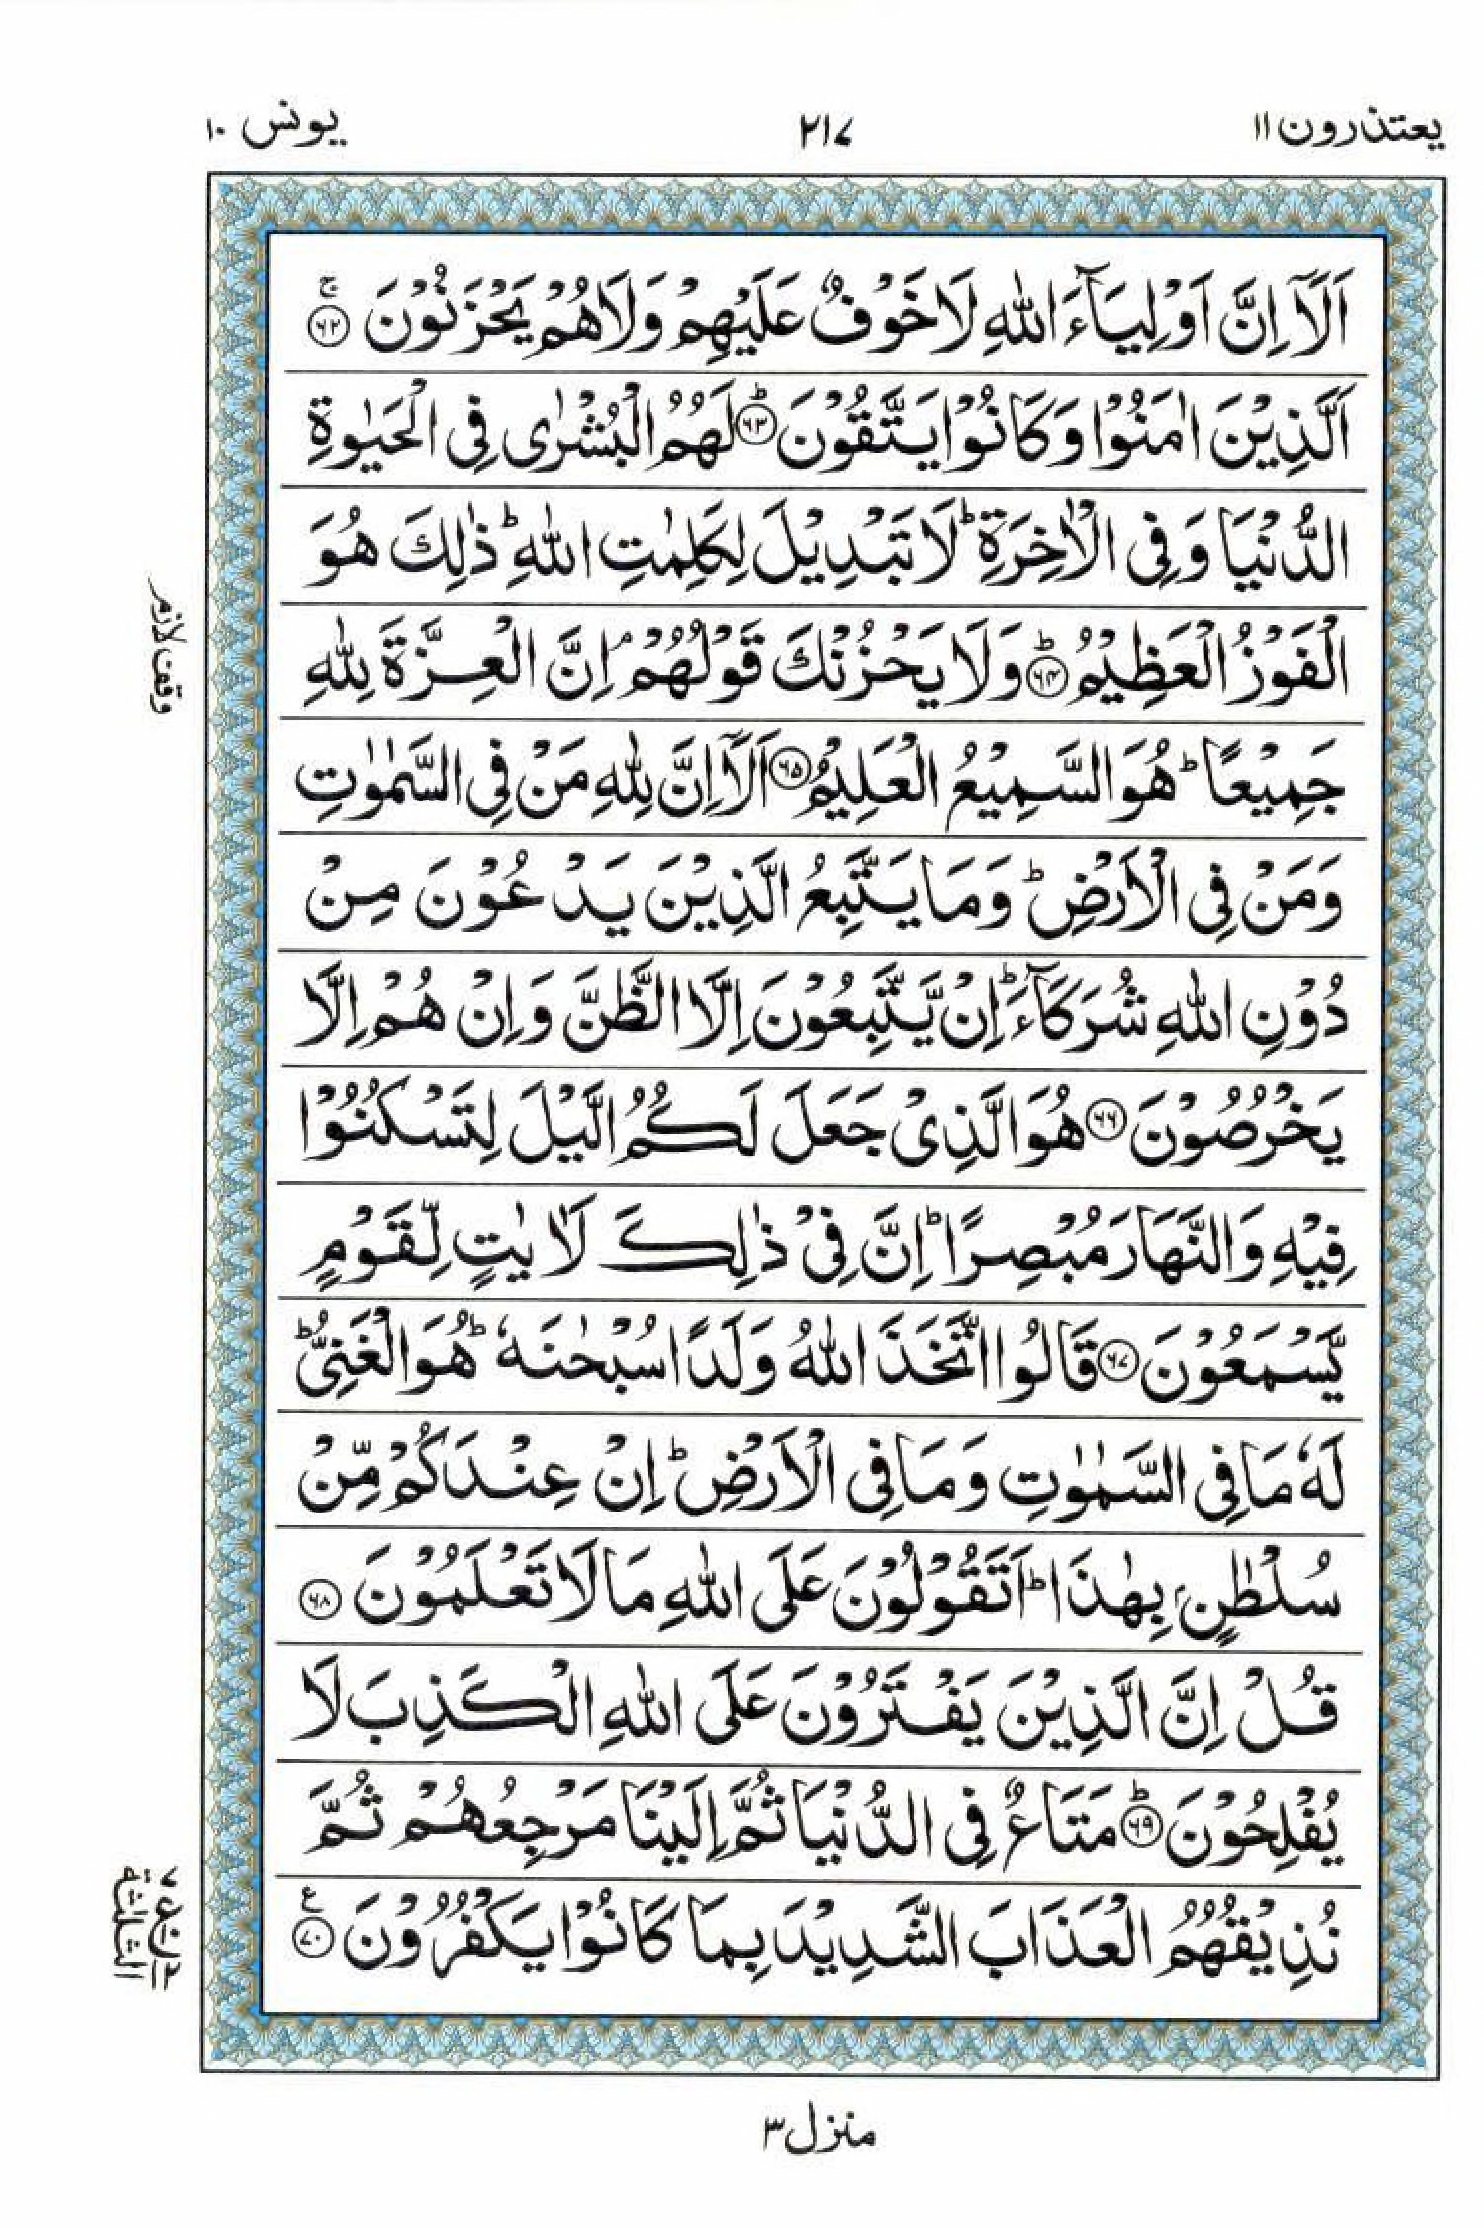 يعتذرون ۱۱
۲۱۷
يونس ۱۰
اَلَاۤ اِنَّ اَوْلِيَآءَ اللّٰهِ لَا خَوْفٌ عَلَيْهِمْ وَلَا هُمْ يَحْزَنُوْنَ ۚۖ‏ ﴿۶۲﴾
اَلَّذِيْنَ اٰمَنُوْا وَكَانُوْا يَتَّقُوْنَ ؕ ﴿۶۳﴾ لَهُمُ الْبُشْرٰى فِى الْحَيٰوةِ
الدُّنْيَا وَفِى الْاٰخِرَةِ ؕ لَا تَبْدِيْلَ لِكَلِمٰتِ اللّٰهِ ؕ ذٰلِكَ هُوَ
الْفَوْزُ الْعَظِيْمُ ؕ ﴿۶۴﴾ وَلَا يَحْزُنْكَ قَوْلُهُمْ ۘ اِنَّ الْعِزَّةَ لِلّٰهِ
جَمِيْعًا ؕ هُوَ السَّمِيْعُ الْعَلِيْمُ ﴿۶۵﴾ اَلَاۤ اِنَّ لِلّٰهِ مَنْ فِى السَّمٰوٰتِ
وَمَنْ فِى الْاَرْضِ ؕ وَمَا يَتَّبِعُ الَّذِيْنَ يَدْعُوْنَ مِنْ
دُوْنِ اللّٰهِ شُرَكَآءَ ؕ اِنْ يَّتَّبِعُوْنَ اِلَّا الظَّنَّ وَاِنْ هُمْ اِلَّا
يَخْرُصُوْنَ ﴿۶۶﴾ هُوَ الَّذِىْ جَعَلَ لَكُمُ الَّيْلَ لِتَسْكُنُوْا
فِيْهِ وَالنَّهَارَ مُبْصِرًا ؕ اِنَّ فِىْ ذٰلِكَ لَاٰيٰتٍ لِّقَوْمٍ
يَّسْمَعُوْنَ ﴿۶۷﴾ قَالُوا اتَّخَذَ اللّٰهُ وَلَدًا سُبْحٰنَهٗ ؕ هُوَ الْغَنِىُّ ؕ
لَهٗ مَا فِى السَّمٰوٰتِ وَمَا فِى الْاَرْضِ ؕ اِنْ عِنْدَكُمْ مِّنْ
سُلْطٰنٍۭ بِهٰذَا ؕ اَتَقُوْلُوْنَ عَلَى اللّٰهِ مَا لَا تَعْلَمُوْنَ ﴿۶۸﴾
قُلْ اِنَّ الَّذِيْنَ يَفْتَرُوْنَ عَلَى اللّٰهِ الْكَذِبَ لَا
يُفْلِحُوْنَ ؕ ﴿۶۹﴾ مَتَاعٌ فِى الدُّنْيَا ثُمَّ اِلَيْنَا مَرْجِعُهُمْ ثُمَّ
نُذِيْقُهُمُ الْعَذَابَ الشَّدِيْدَ بِمَا كَانُوْا يَكْفُرُوْنَ ﴿۷۰﴾ ع
وقف لازم
الثلثة
منزل ۳